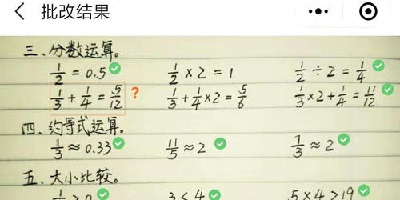 批改结果
三、分数运算。
1/2 = 0.5 1/2 × 2 = 1 1/2 ÷ 2 = 1/4
1/3 + 1/4 = 5/12 ? 1/3 + 1/4 × 2 = 5/6 1/3 × 2 + 1/4 = 11/12
四、约等式运算。
1/3 ≈ 0.33 11/5 ≈ 2 7/3 ≈ 2
五、大小比较。
3 < 4 5 × 4 > 19